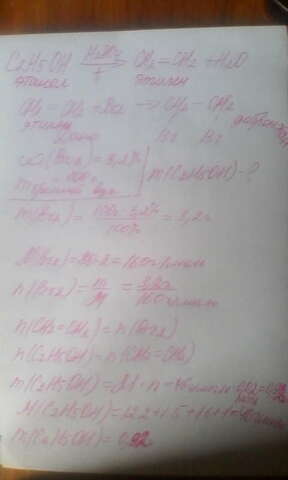 C2H5OH H2SO4 → t CH2=CH2 + H2O
этанол этилен
CH2=CH2 + Br2 → CH2 - CH2
этилен Br Br
Дано
ω(Br2) = 3,2%
m(C2H5OH) - ?
m(Br2) = 100г · 3,2% / 100% = 3,2г
M(Br2) = 80·2 = 160 г/моль
n(Br2) = m/M = 3,2г / 160 г/моль
n(CH2=CH2) = n(Br2)
n(C2H5OH) = n(CH2=CH2)
m(C2H5OH) = M · n = 46 г/моль
M(C2H5OH) = 12·2 + 1·5 + 16 + 1 = 46 г/моль
m(C2H5OH) = 0,92